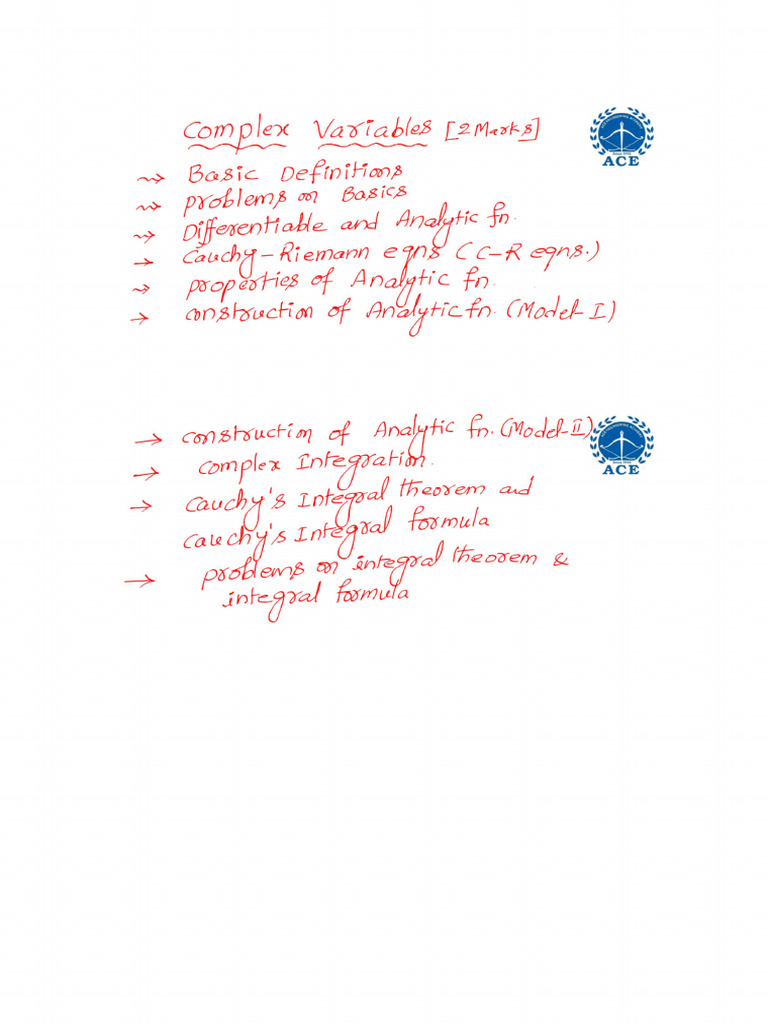 Complex Variables [2 Marks]
ACE
⇝ Basic Definitions
⇝ problems on Basics
⇝ Differentiable and Analytic fn.
→ Cauchy-Riemann eqns (C-R eqns.)
⇝ properties of Analytic fn.
→ construction of Analytic fn. (Model-I)
→ construction of Analytic fn. (Model-II)
ACE
→ complex Integration.
→ Cauchy's Integral theorem and
cauchy's Integral formula
→ problems on integral theorem &
integral formula